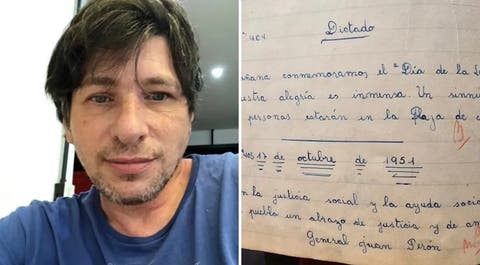 Dictado
conmemoramos el "Día de la
alegría es inmensa. Un
personas estarán en la Plaza de
17 de octubre de 1951
la justicia social y la ayuda
un abrazo de justicia y de
General Juan Perón